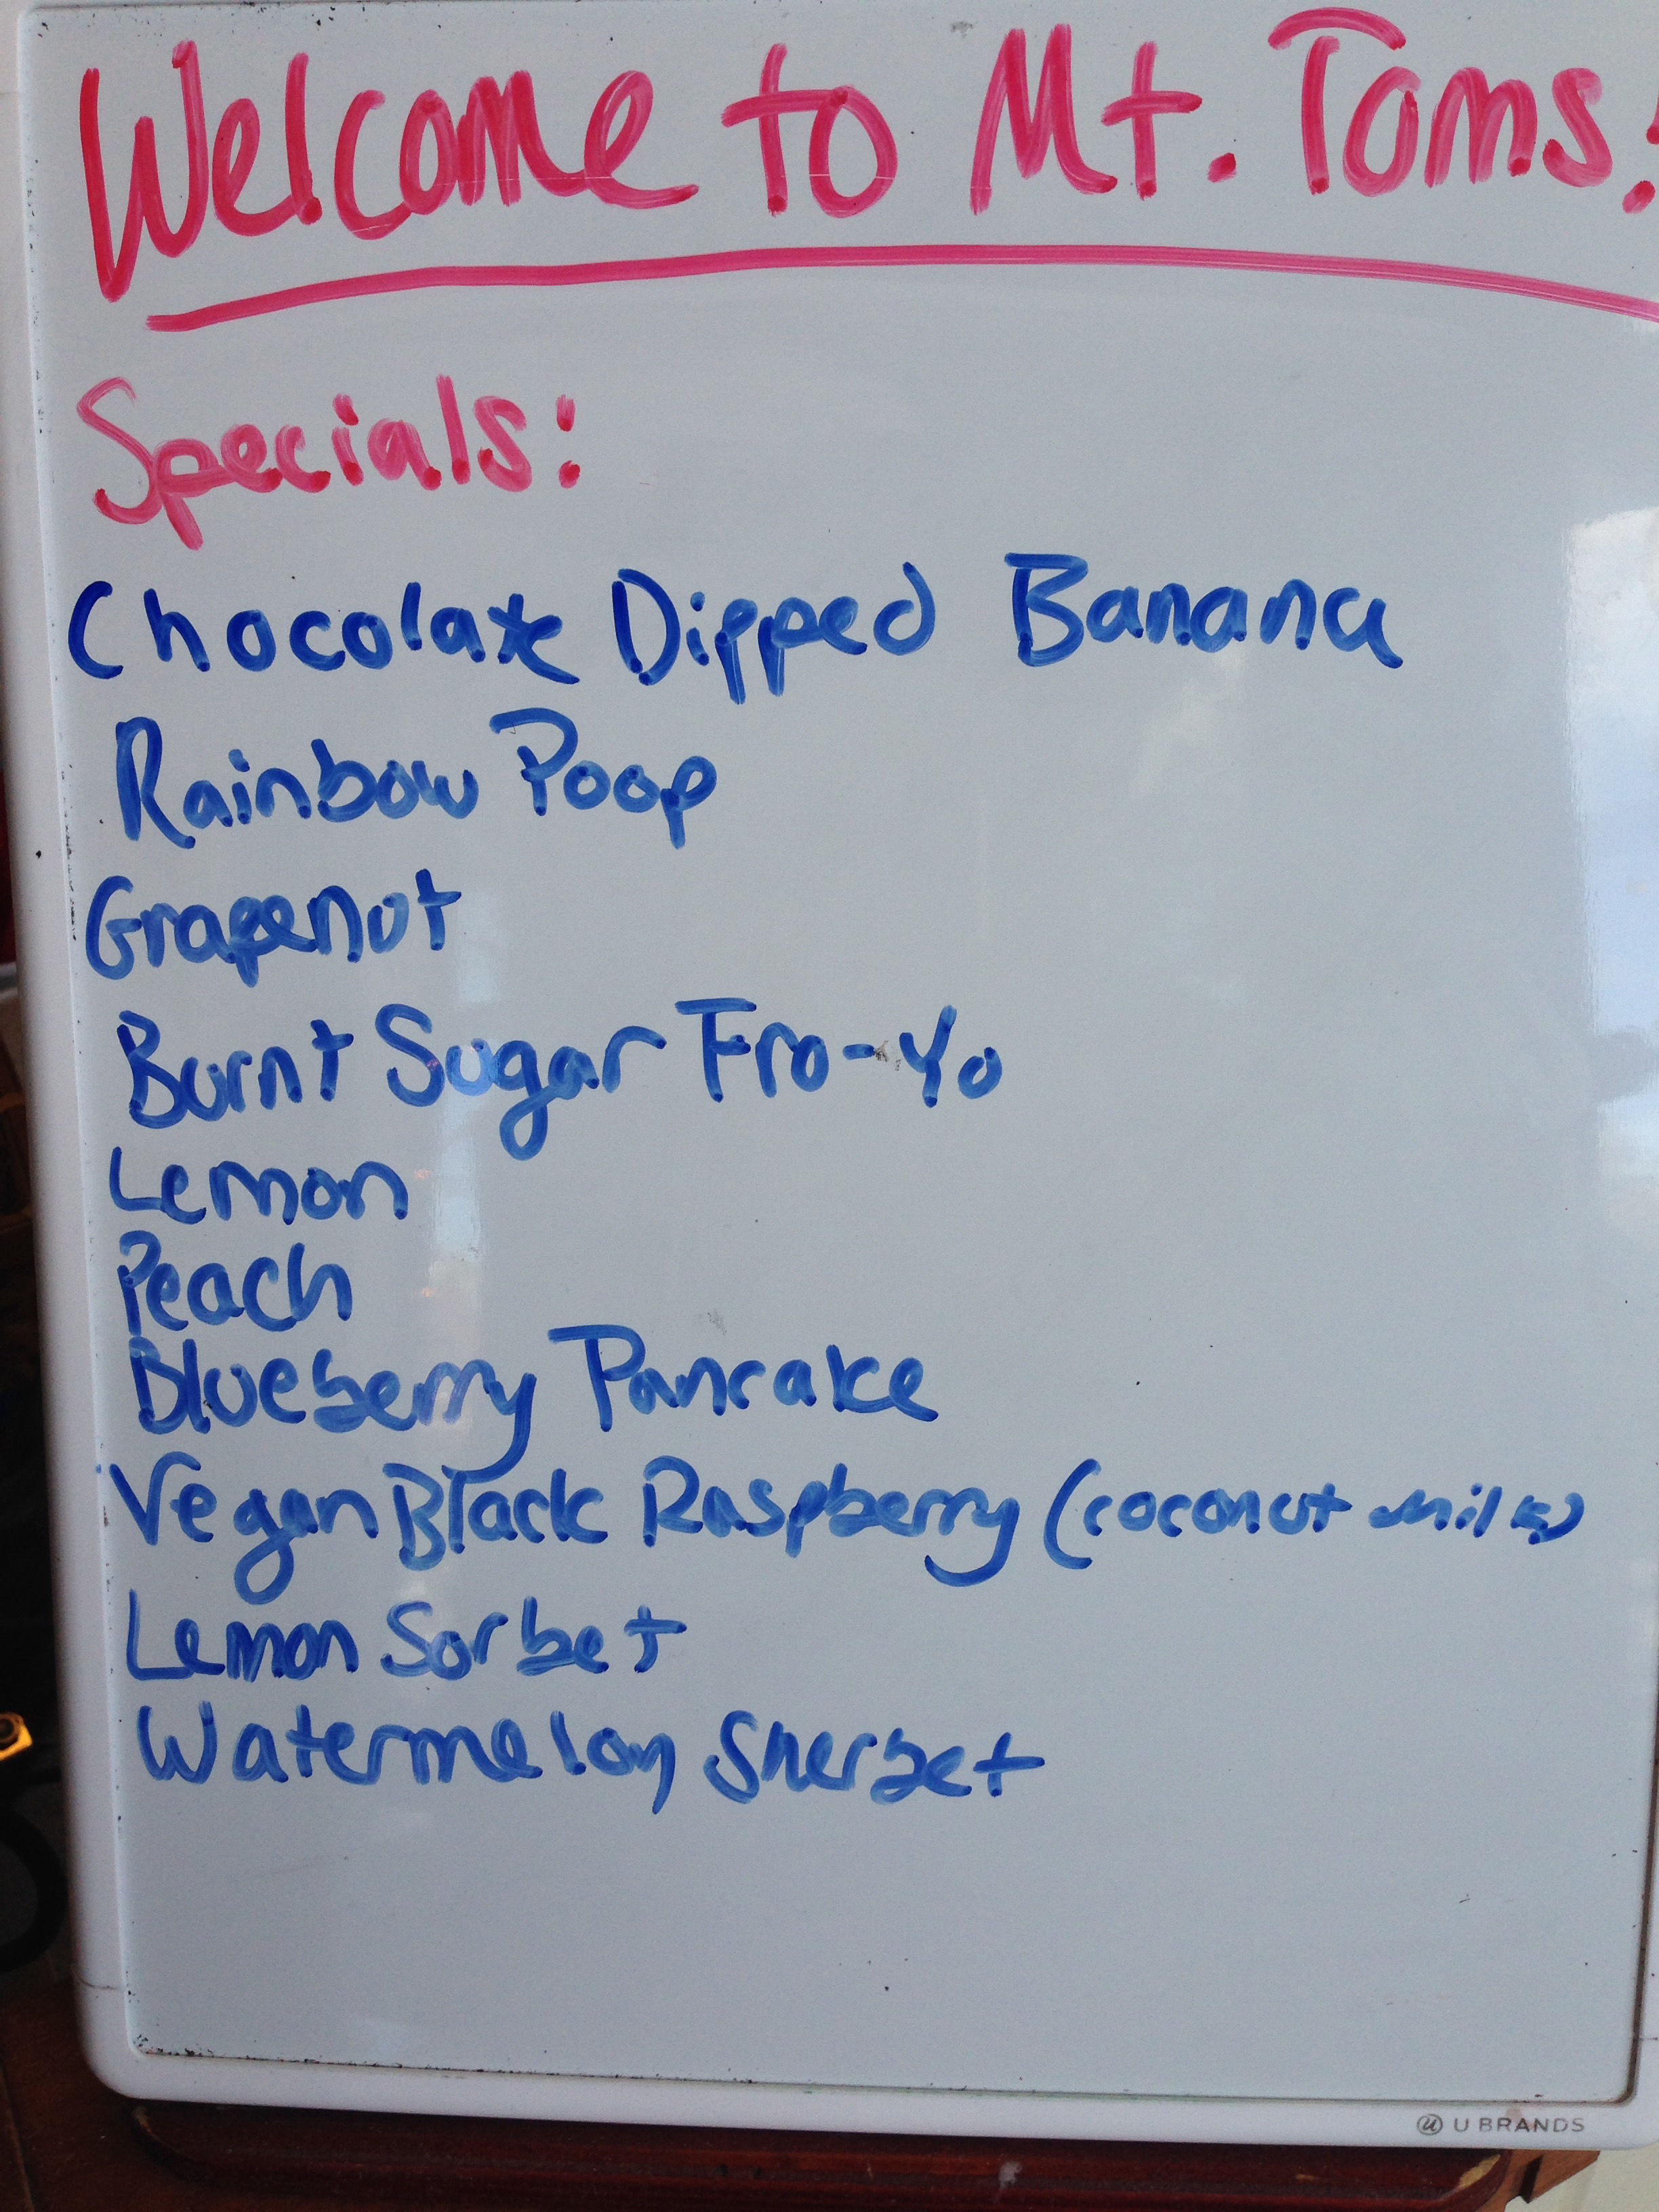 Welcome to Mt. Toms!
Specials:
Chocolate Dipped Banana
Rainbow Poop
Grapenut
Burnt Sugar Fro-Yo
Lemon
Peach
Blueberry Pancake
Vegan Black Raspberry (coconut milk)
Lemon Sorbet
Watermelon Sherbet
U BRANDS